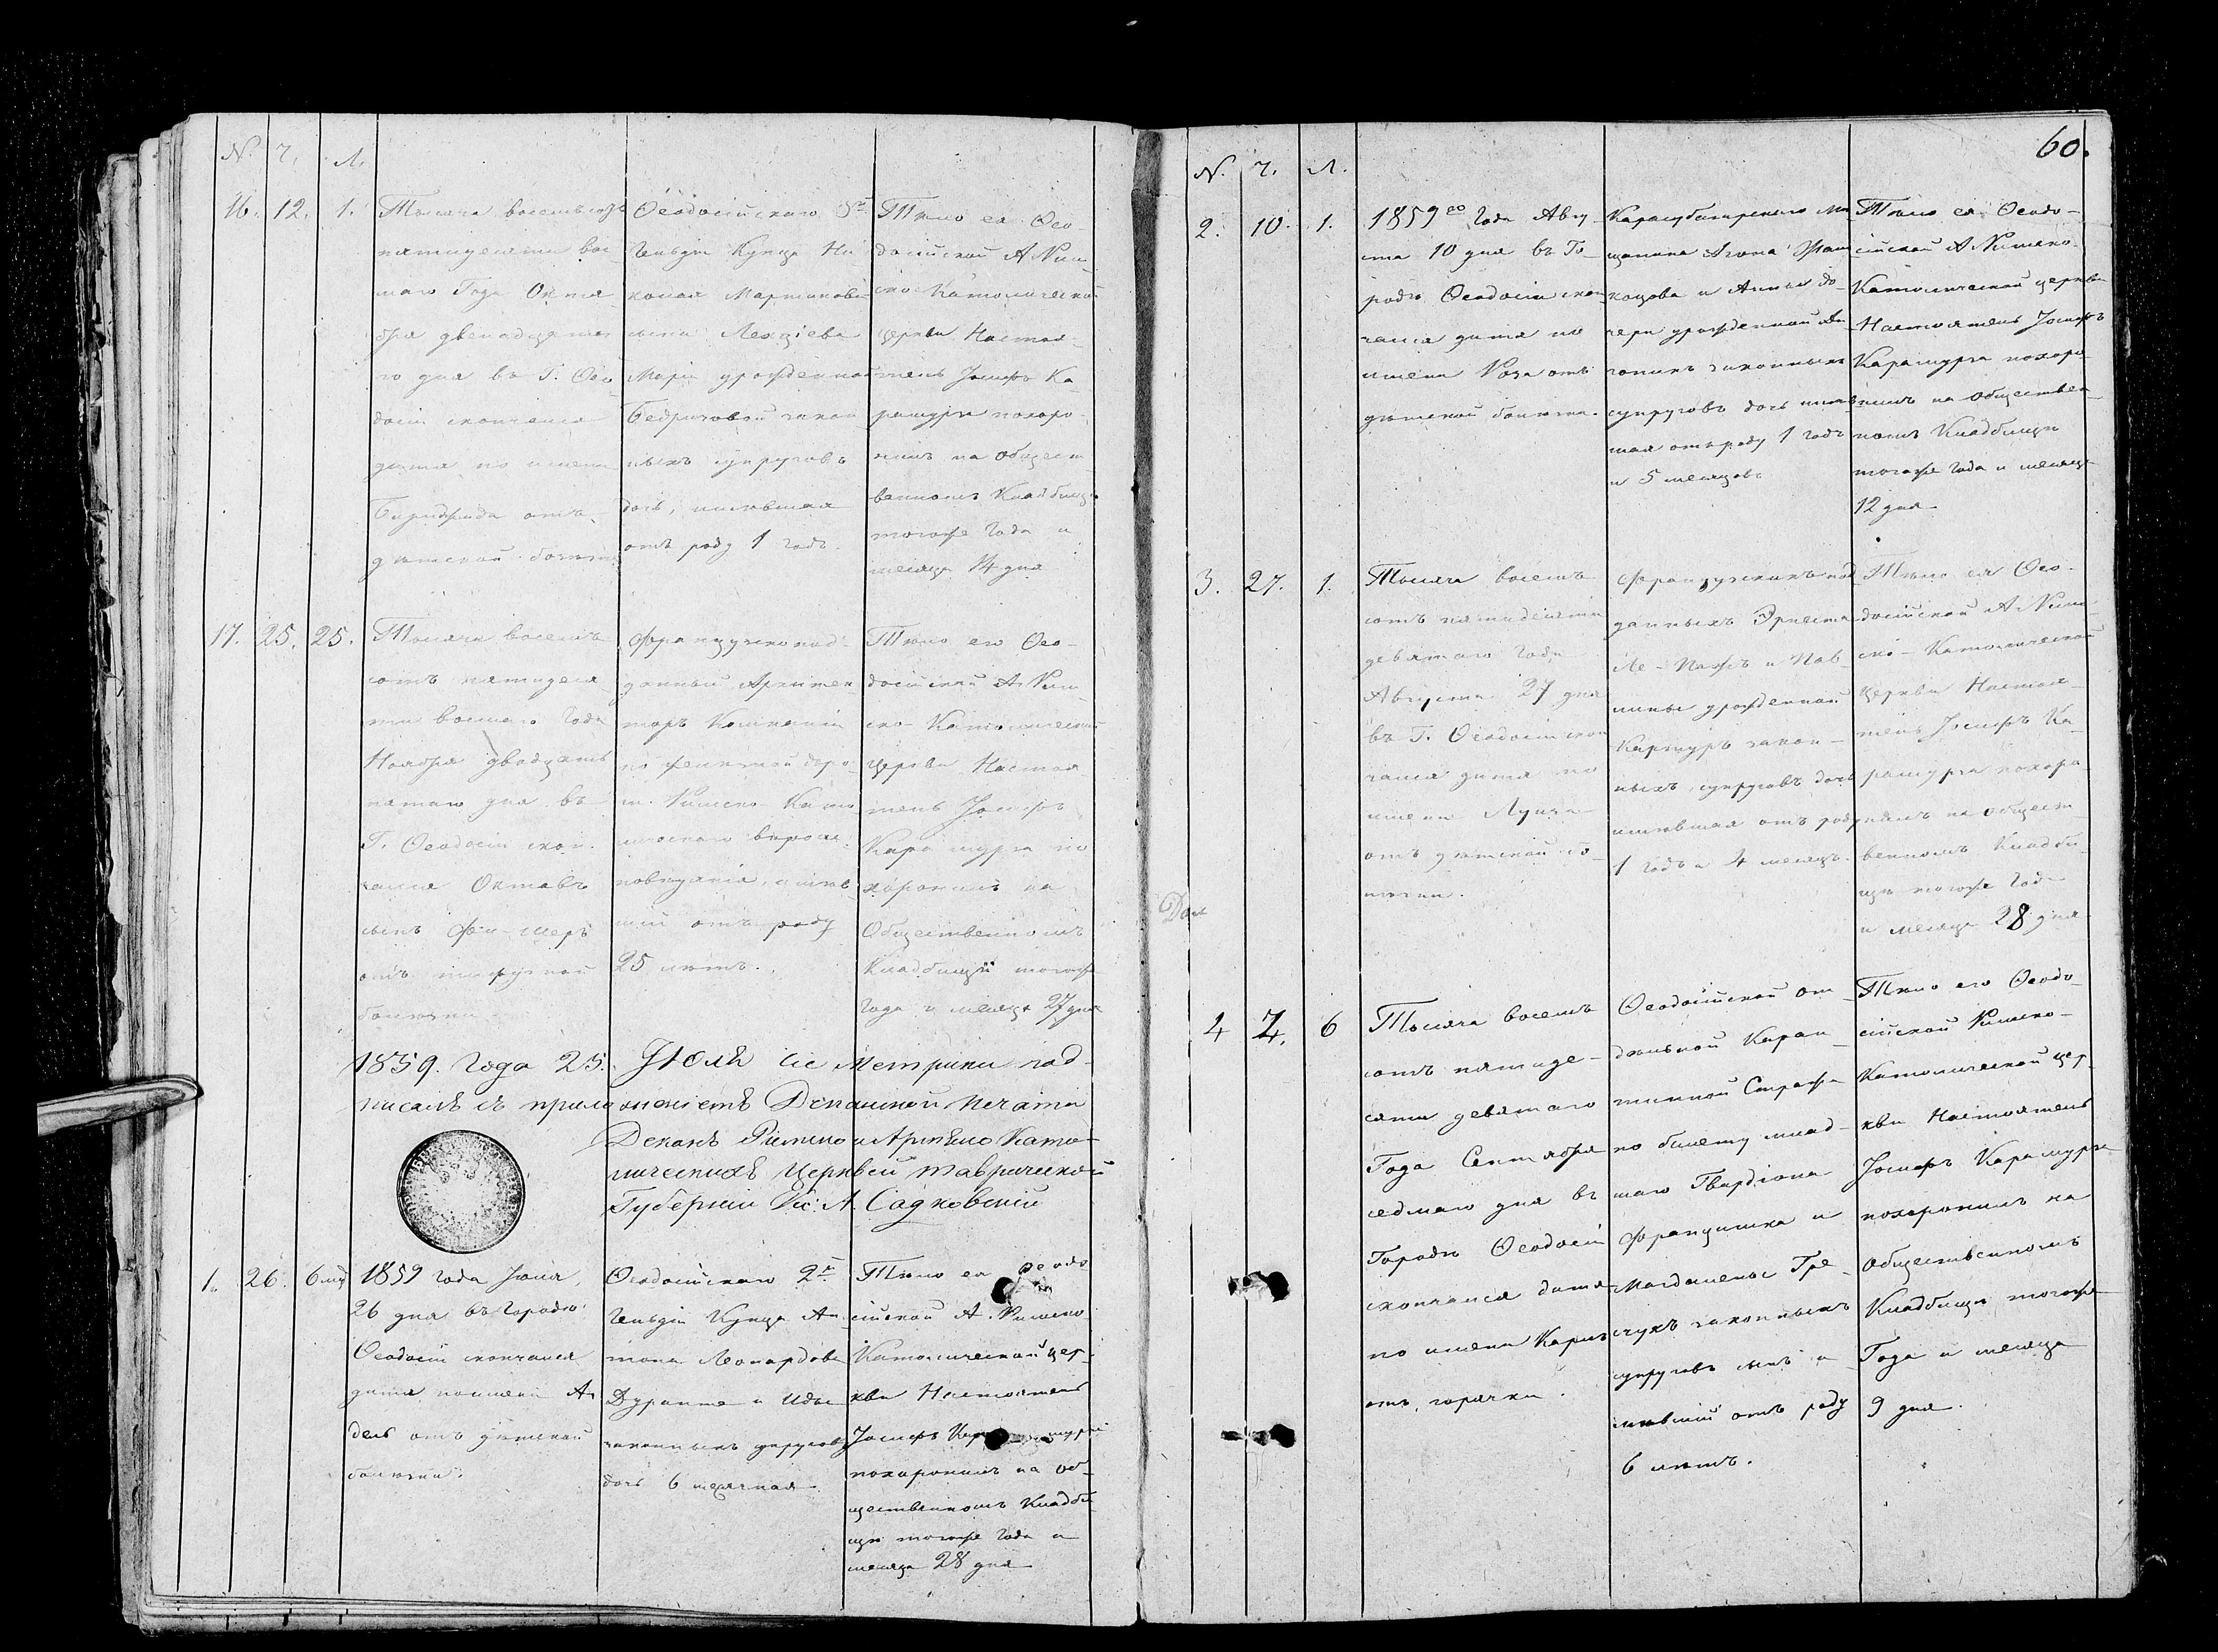 N. Ч. Л.
16. 12. 1.
Тысяча восемьсотъ
пятидесяти вос
маго Года Октя
бря двенадцата
го дня въ Г. Ѳео
досіи скончался
дитя по имени
отъ
дѣтской болѣзни
Ѳеодосійскаго 3й
Гильдіи Купца Ни
колая Мартинова
сына
Маріи урожденной
закон
ныхъ супруговъ
дочь, имѣвшая
отъ роду 1 годъ.
Тѣло ея Ѳео-
досійской А Рим
ско Католической
церкви Настоя-
тель Іосифъ Ка
рамурза похоро
нилъ на общест
венномъ Кладбищѣ
тогоже Года и
месяца 14 дня
17. 25. 25.
Тысяча восемь
сотъ пятидеся
ти восмаго Года
Ноября двадцать
пятаго дня въ
Г. Ѳеодосіи скон
чался Октавъ
сынъ
отъ
болѣзни
Французскопод
данный Архитек
торъ Компаніи
по желѣзной доро
ги Римско Като
лическаго вѣроис
повѣданія, имѣв
шій отъ роду
25 лѣтъ.
Тѣло его Ѳео-
досійской А Рим
ско Католической
Церкви Настоя
тель Іосифъ
Карамурза по
хоронилъ на
Общественномъ
Кладбищѣ тогоже
Года и месяца 27 дня
1859. Года 25. Іюля сіе Метрики под
писалъ съ приложеніемъ Деканской печати
Деканъ Римско и Армѣно Като-
лическихъ Церквей Таврической
Губерніи Кс: А. Садковскій
1. 26. 6 мц
1859 года Іюля,
26 дня въ Городѣ
Ѳеодосіи скончался
дитя поимени А
дель отъ дѣтской
болѣзни.
Ѳеодосійскаго 2й
Гильдіи Купца Ан
тона Леонардова
Дуранте и Иды
законныхъ супруговъ
дочь 6 месячная.
Тѣло ея Ѳеодо
сійской А. Римско
Католической Цер-
кви Настоятель
Іосифъ Карамурза
похоронилъ на об-
щественномъ Кладби
щѣ тогоже Года и
месяца 28 дня
60.
N. Ч. Л.
2. 10. 1.
1859го Года Авгу-
ста 10 дня въ Го-
родѣ Ѳеодосіи скон
чался дитя по
имени Роза отъ
дѣтской болѣзни.
Карасубазарскаго Мѣ
щанина Агопа
и Анны до-
чери урожденной
законныхъ
супруговъ дочь имѣв
шая отъ роду 1 годъ
и 5 месяцовъ
Тѣло ея Ѳеодо-
сійской А Римско
Католической церкви
Настоятель Іосифъ
Карамурза похоро
нилъ на обществен
номъ Кладбищѣ
тогоже Года и месяца
12 дня
3. 27. 1.
Тысяча восемь
сотъ пятидесяти
девятаго Года
Августа 27 дня
въ Г. Ѳеодосіи скон
чался дитя по
имени Луиза
отъ дѣтской бо-
лѣзни.
Французскихъ под
данныхъ Эрнеста
Ле-Пажъ и Пав
лины урожденной
Картуръ закон-
ныхъ супруговъ дочь
имѣвшая отъ роду
1 годъ и 4 месяцъ.
Тѣло ея Ѳео-
досійской А Рим
ско-Католической
Церкви Настоя-
тель Іосифъ Ка
рамурза похоро
нилъ на общест
венномъ Кладби
щѣ тогоже Года
и месяца 28 дня
4 7. 6
Тысяча восемь
сотъ пятиде-
сяти девятаго
Года Сентября
седмаго дня въ
Городѣ Ѳеодосіи
скончался дитя
по имени Карлъ
отъ горячки.
Ѳеодосійской от
дѣльной Каран
тинной Стражи
по билету млад-
шаго Гвардіона
Францишка и
Магдалены Гре
чукъ законныхъ
супруговъ сынъ и
мѣвшій отъ роду
6 лѣтъ.
Тѣло его Ѳеодо
сійской Римско-
Католической цер
кви Настоятель
Іосифъ Карамурза
похоронилъ на
Общественномъ
Кладбищѣ тогоже
Года и месяца
9 дня.